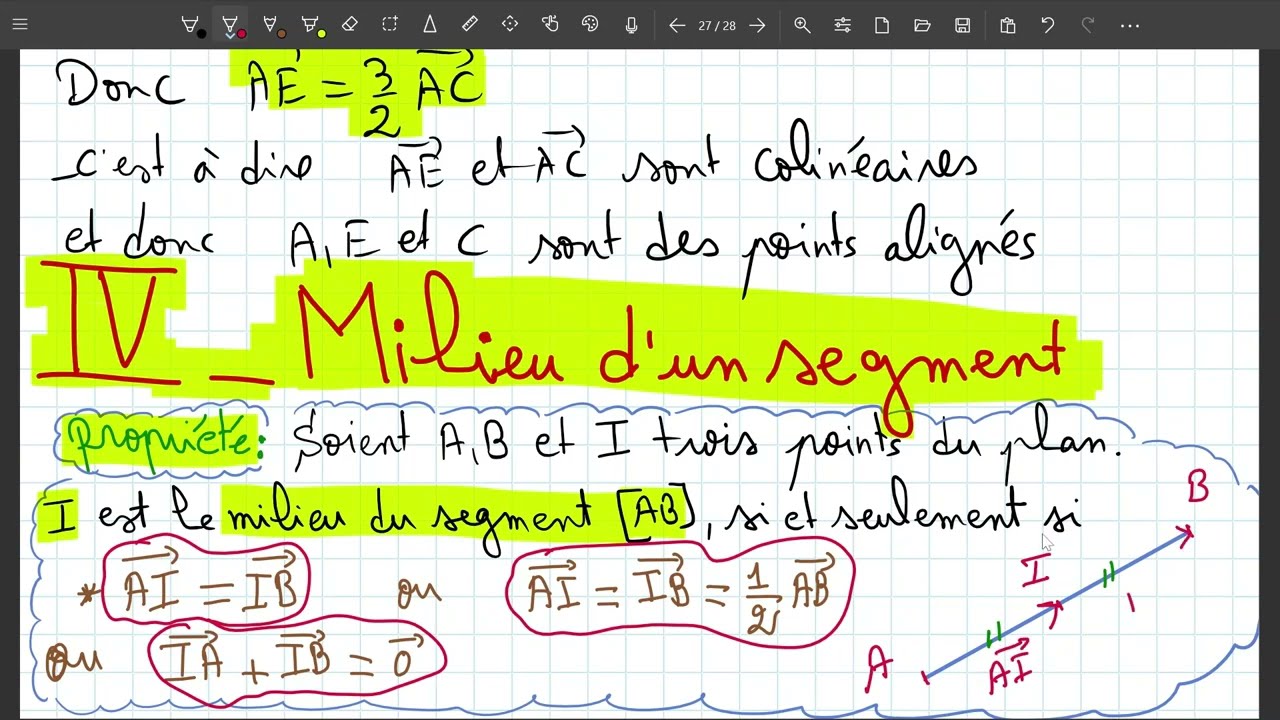 27 / 28
Donc AE⃗ = 3/2 AC⃗
c'est à dire AE⃗ et AC⃗ sont colinéaires
et donc A, E et C sont des points alignés
IV _ Milieu d'un segment
Propriété: Soient A, B et I trois points du plan.
I est le milieu du segment [AB], si et seulement si
* AI⃗ = IB⃗ ou AI⃗ = IB⃗ = 1/2 AB⃗
ou IA⃗ + IB⃗ = 0⃗
B
I
A
AI⃗